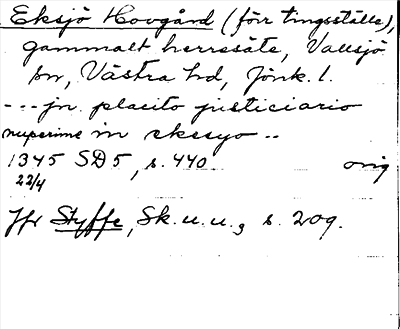 Eksjö Hovgård (förr tingsställe),
gammalt herresäte, Vallsjö
sn, Västra hd, Jönk. l.
--- jn placito justiciario
nuperime in ekesyo ..
1345 SD5, s. 440 orig
22/4
Jfr Styffe, Sk.u.u., s. 209.